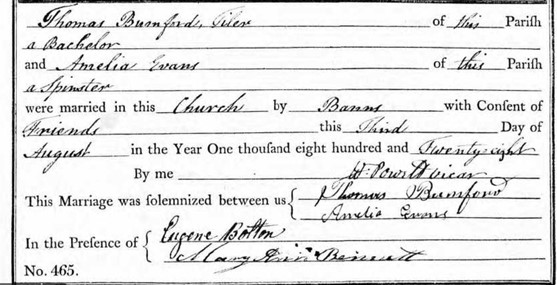 Thomas Bumford, Tiler of this Parish
a Bachelor
and Amelia Evans of this Parish
a Spinster
were married in this Church by Banns with Consent of
Friends this Third Day of
August in the Year One thouſand eight hundred and Twenty eight
By me W. Powell Vicar
This Marriage was ſolemnized between us { Thomas Bumford
Amelia Evans
In the Preſence of { Eugene Bolton
Mary Ann Bennett
No. 465.